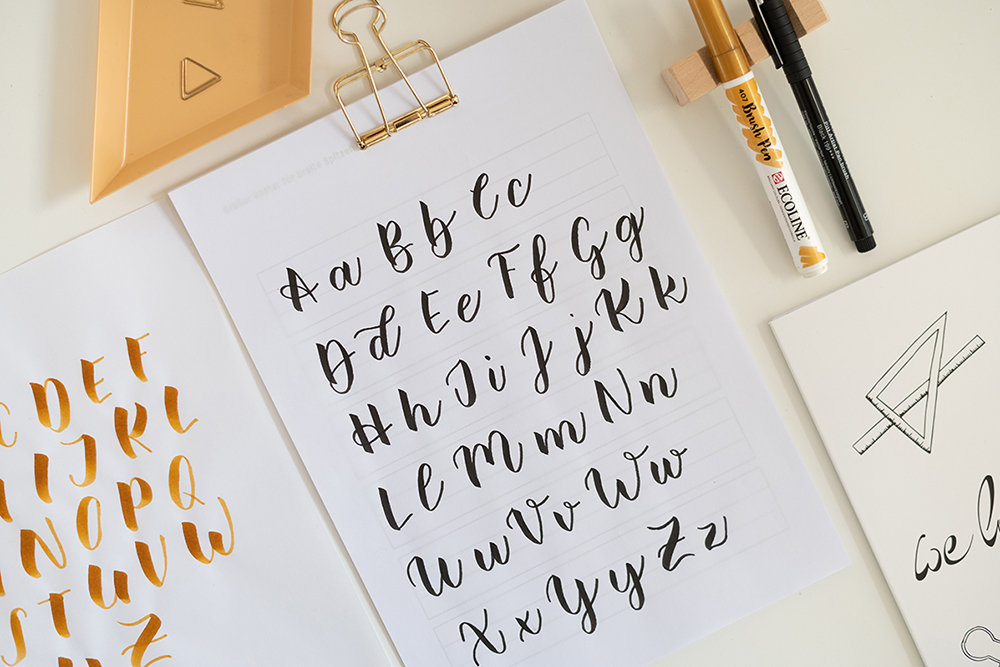 Aa Bb Cc
Dd Ee Ff Gg
Hh Ii Jj Kk
Ll Mm Nn
Uu Vv Ww
Xx Yy Zz
C D E F
I J K L
N O P Q
S T U V W
Z
407 Brush Pen
ECOLINE
we